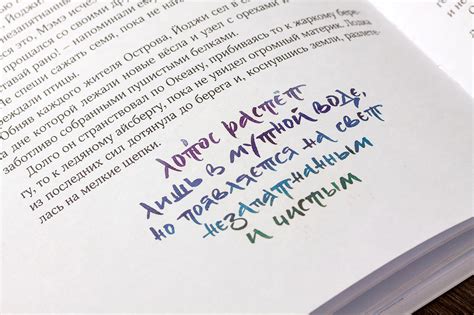 прощался со своими др
вставай рано! – напоминали се
Не спеши сажать семя, пока не на
реждали птицы.
Обняв каждого жителя Острова, Йоджи сел в
на дне которой лежали новые вёсла и узел с орехами и
заботливо собранными пушистыми белками.
Долго он странствовал по Океану, прибиваясь то к жаркому бере-
гу, то к ледяному айсбергу, пока не увидел огромный материк. Лодка
из последних сил дотянула до берега и, коснувшись земли, разлете-
лась на мелкие щепки.
лотос растёт
лишь в мутной воде,
но появляется на свет
незапятнанным
и чистым